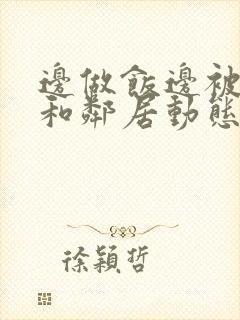 邊做飯邊被
和鄰居動態
徐穎哲